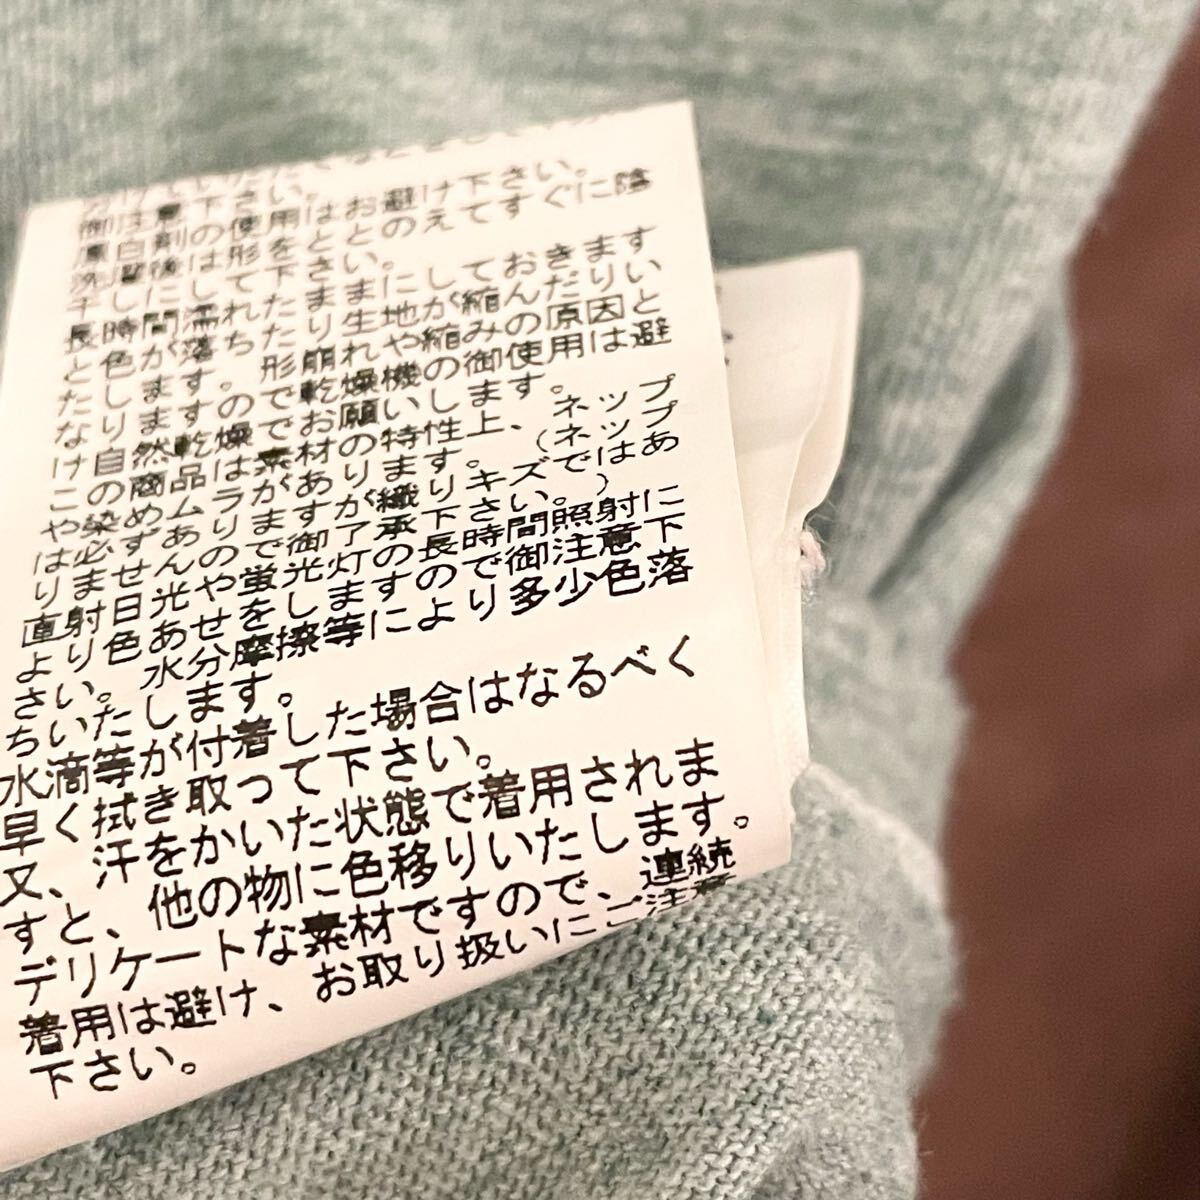 御注意下さい。
漂白剤の使用はお避け下さい。
洗濯後は形をととのえてすぐに陰
干しにして下さい。
長時間濡れたままにしておきます
と色が落ちたり生地が縮んだりい
たします。形崩れや縮みの原因と
なりますので乾燥機の御使用は避
け自然乾燥でお願いします。
この商品は素材の特性上、ネップ
や染めムラがあります。(ネップ
は必ずありますが織りキズではあ
りませんので御了承下さい。)
直射日光や蛍光灯の長時間照射に
より色あせをしますので御注意下
さい。水分摩擦等により多少色落
ちいたします。
水滴等が付着した場合はなるべく
早く拭き取って下さい。
又、汗をかいた状態で着用されま
すと、他の物に色移りいたします。
デリケートな素材ですので、連続
着用は避け、お取り扱いにご注意
下さい。